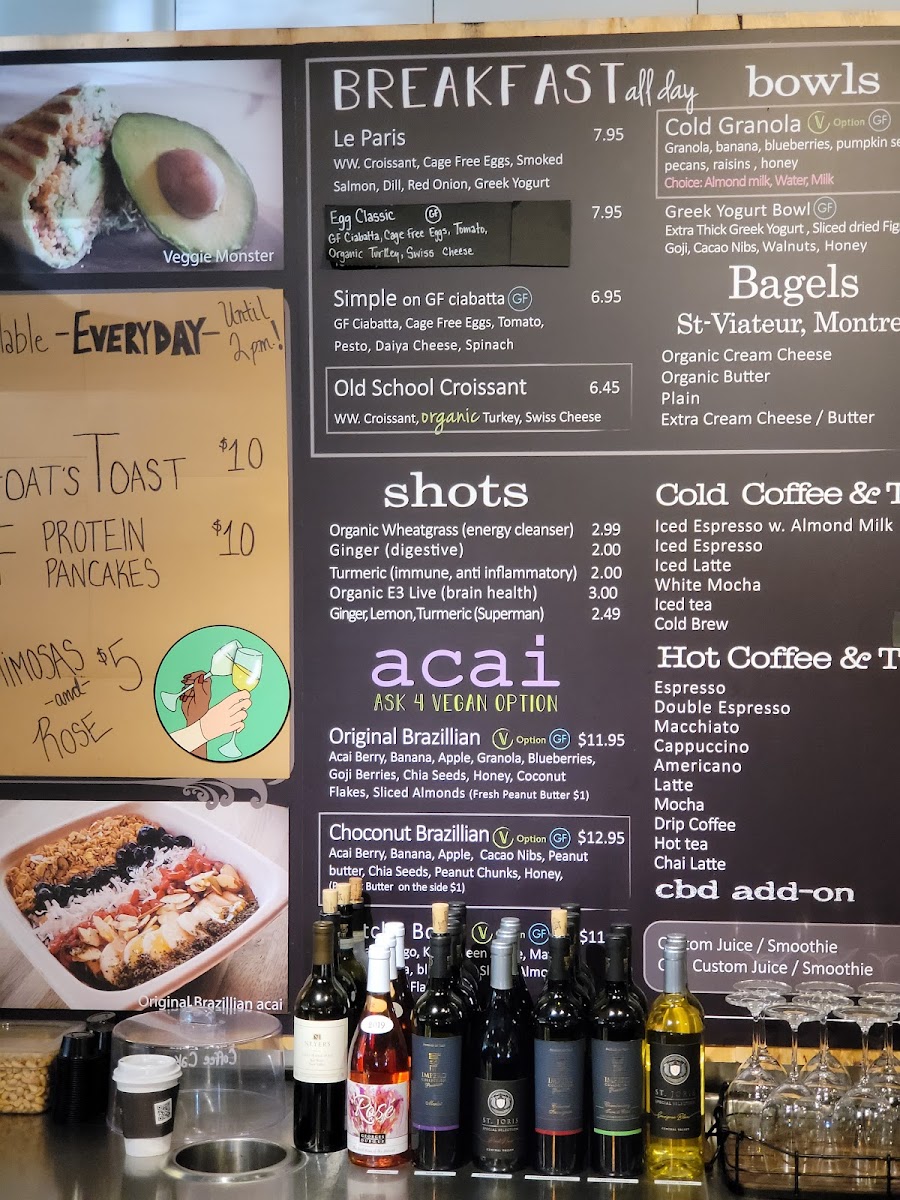 Veggie Monster
-EVERYDAY- Until
2pm!
TOAST $10
PROTEIN $10
PANCAKES
MIMOSAS $5
-and-
ROSE
Original Brazillian acai
BREAKFAST all day
Le Paris 7.95
WW. Croissant, Cage Free Eggs, Smoked
Salmon, Dill, Red Onion, Greek Yogurt
Egg Classic GF 7.95
GF Ciabatta, Cage Free Eggs, Tomato,
Organic Turkey, Swiss Cheese
Simple on GF ciabatta GF 6.95
GF Ciabatta, Cage Free Eggs, Tomato,
Pesto, Daiya Cheese, Spinach
Old School Croissant 6.45
WW. Croissant, organic Turkey, Swiss Cheese
shots
Organic Wheatgrass (energy cleanser) 2.99
Ginger (digestive) 2.00
Turmeric (immune, anti inflammatory) 2.00
Organic E3 Live (brain health) 3.00
Ginger, Lemon, Turmeric (Superman) 2.49
acai
ASK 4 VEGAN OPTION
Original Brazillian V Option GF $11.95
Acai Berry, Banana, Apple, Granola, Blueberries,
Goji Berries, Chia Seeds, Honey, Coconut
Flakes, Sliced Almonds (Fresh Peanut Butter $1)
Choconut Brazillian V Option GF $12.95
Acai Berry, Banana, Apple, Cacao Nibs, Peanut
butter, Chia Seeds, Peanut Chunks, Honey,
Butter on the side $1)
V GF $11
bowls
Cold Granola V Option GF
Granola, banana, blueberries, pumpkin
pecans, raisins , honey
Choice: Almond milk, Water, Milk
Greek Yogurt Bowl GF
Extra Thick Greek Yogurt , Sliced dried
Goji, Cacao Nibs, Walnuts, Honey
Bagels
St-Viateur,
Organic Cream Cheese
Organic Butter
Plain
Extra Cream Cheese / Butter
Cold Coffee &
Iced Espresso w. Almond Milk
Iced Espresso
Iced Latte
White Mocha
Iced tea
Cold Brew
Hot Coffee &
Espresso
Double Espresso
Macchiato
Cappuccino
Americano
Latte
Mocha
Drip Coffee
Hot tea
Chai Latte
cbd add-on
Juice / Smoothie
Custom Juice / Smoothie
2019
Rosé
ST. JORIS
SPECIAL SELECTION
ST. JORIS
SPECIAL SELECTION
Sauvignon Blanc